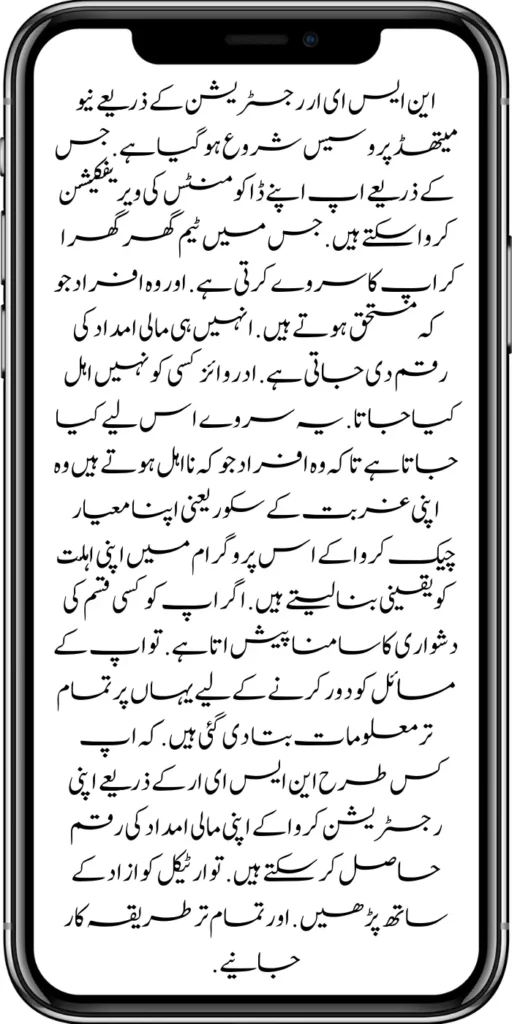 این ایس ای ار رجسٹریشن کے ذریعے نیو
میتھڈ پروسیس شروع ہو گیا ہے. جس
کے ذریعے اپ اپنے ڈاکومنٹس کی ویریفکیشن
کروا سکتے ہیں. جس میں ٹیم گھر گھر ا
کر اپ کا سروے کرتی ہے. اور وہ افراد جو
کہ مستحق ہوتے ہیں. انہیں ہی مالی امداد کی
رقم دی جاتی ہے. ادروائز کسی کو نہیں اہل
کیا جاتا. یہ سروے اس لیے کیا
جاتا ہے تاکہ وہ افراد جو کہ نااہل ہوتے ہیں وہ
اپنی غربت کے سکور یعنی اپنا معیار
چیک کروا کے اس پروگرام میں اپنی اہلت
کو یقینی بنا لیتے ہیں. اگر اپ کو کسی قسم کی
دشواری کا سامنا پیش اتا ہے. تو اپ کے
مسائل کو دور کرنے کے لیے یہاں پر تمام
تر معلومات بتا دی گئی ہیں. کہ اپ
کس طرح این ایس ای ار کے ذریعے اپنی
رجسٹریشن کروا کے اپنی مالی امداد کی رقم
حاصل کر سکتے ہیں. تو ارٹیکل کو ازاد کے
ساتھ پڑھیں. اور تمام تر طریقہ کار
جانیے.